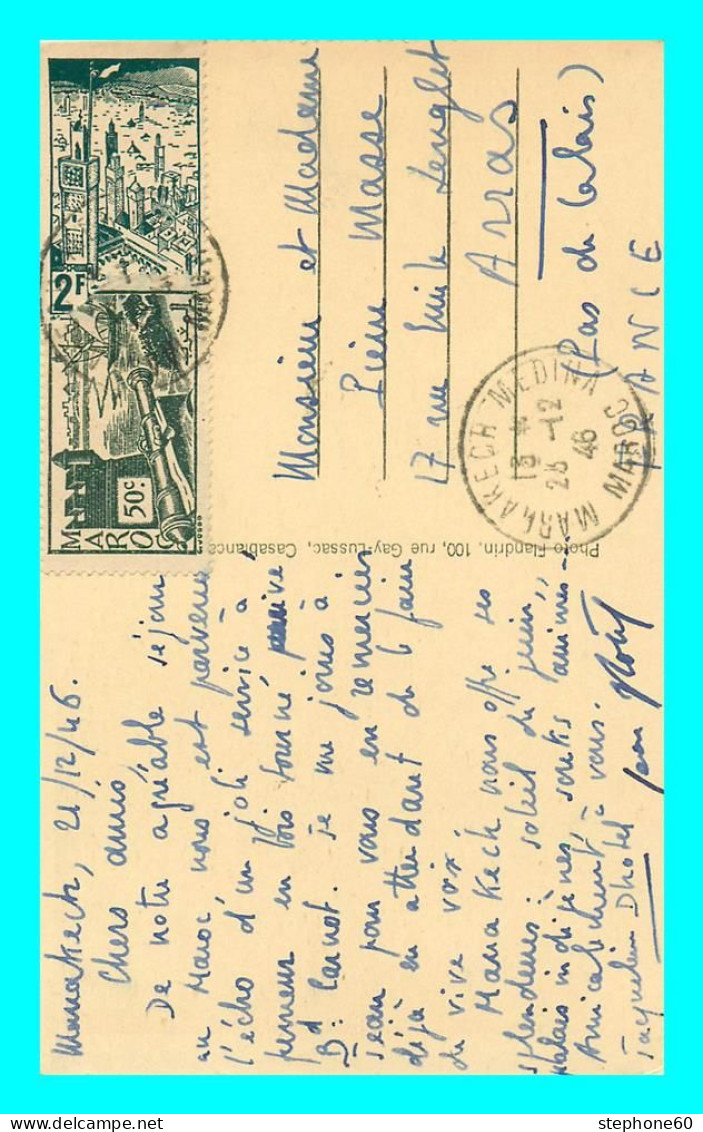 Marrakech, 21/12/46.
Chers amis
De notre agréable séjour
au Maroc nous est parvenu
l'écho d'un joli service à
fumeur en bois tourné
Bd Carnot. je me joins à
Jean pour vous en remercier
déjà en attendant de le faire
de vive voix
Marrakech nous offre ses
splendeurs : soleil de juin,
palais indigènes, souks animés –
Amicalement à vous.
Jacqueline Dhotel Jean
Photo Flandrin, 100, rue Gay-Lussac, Casablanca
Monsieur et Madame
Pierre Masse
17 rue Emile Lenglet
Arras
(Pas de Calais)
FRANCE
2F
50c
MAROC
MARRAKECH MEDINA MAROC
18 *
23 -12
46
stephone60